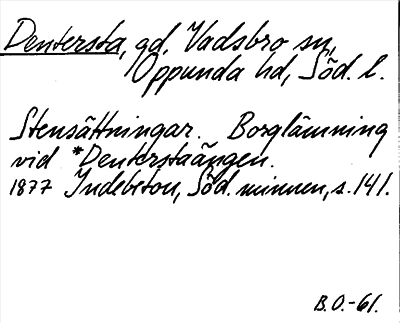 Dentersta, gd, Vadsbro sn,
Oppunda hd, Söd. l.
Stensättningar. Borglämning
vid *Denterstaängen.
1877 Indebetou, Söd. minnen, s. 141.
B.O.-61.